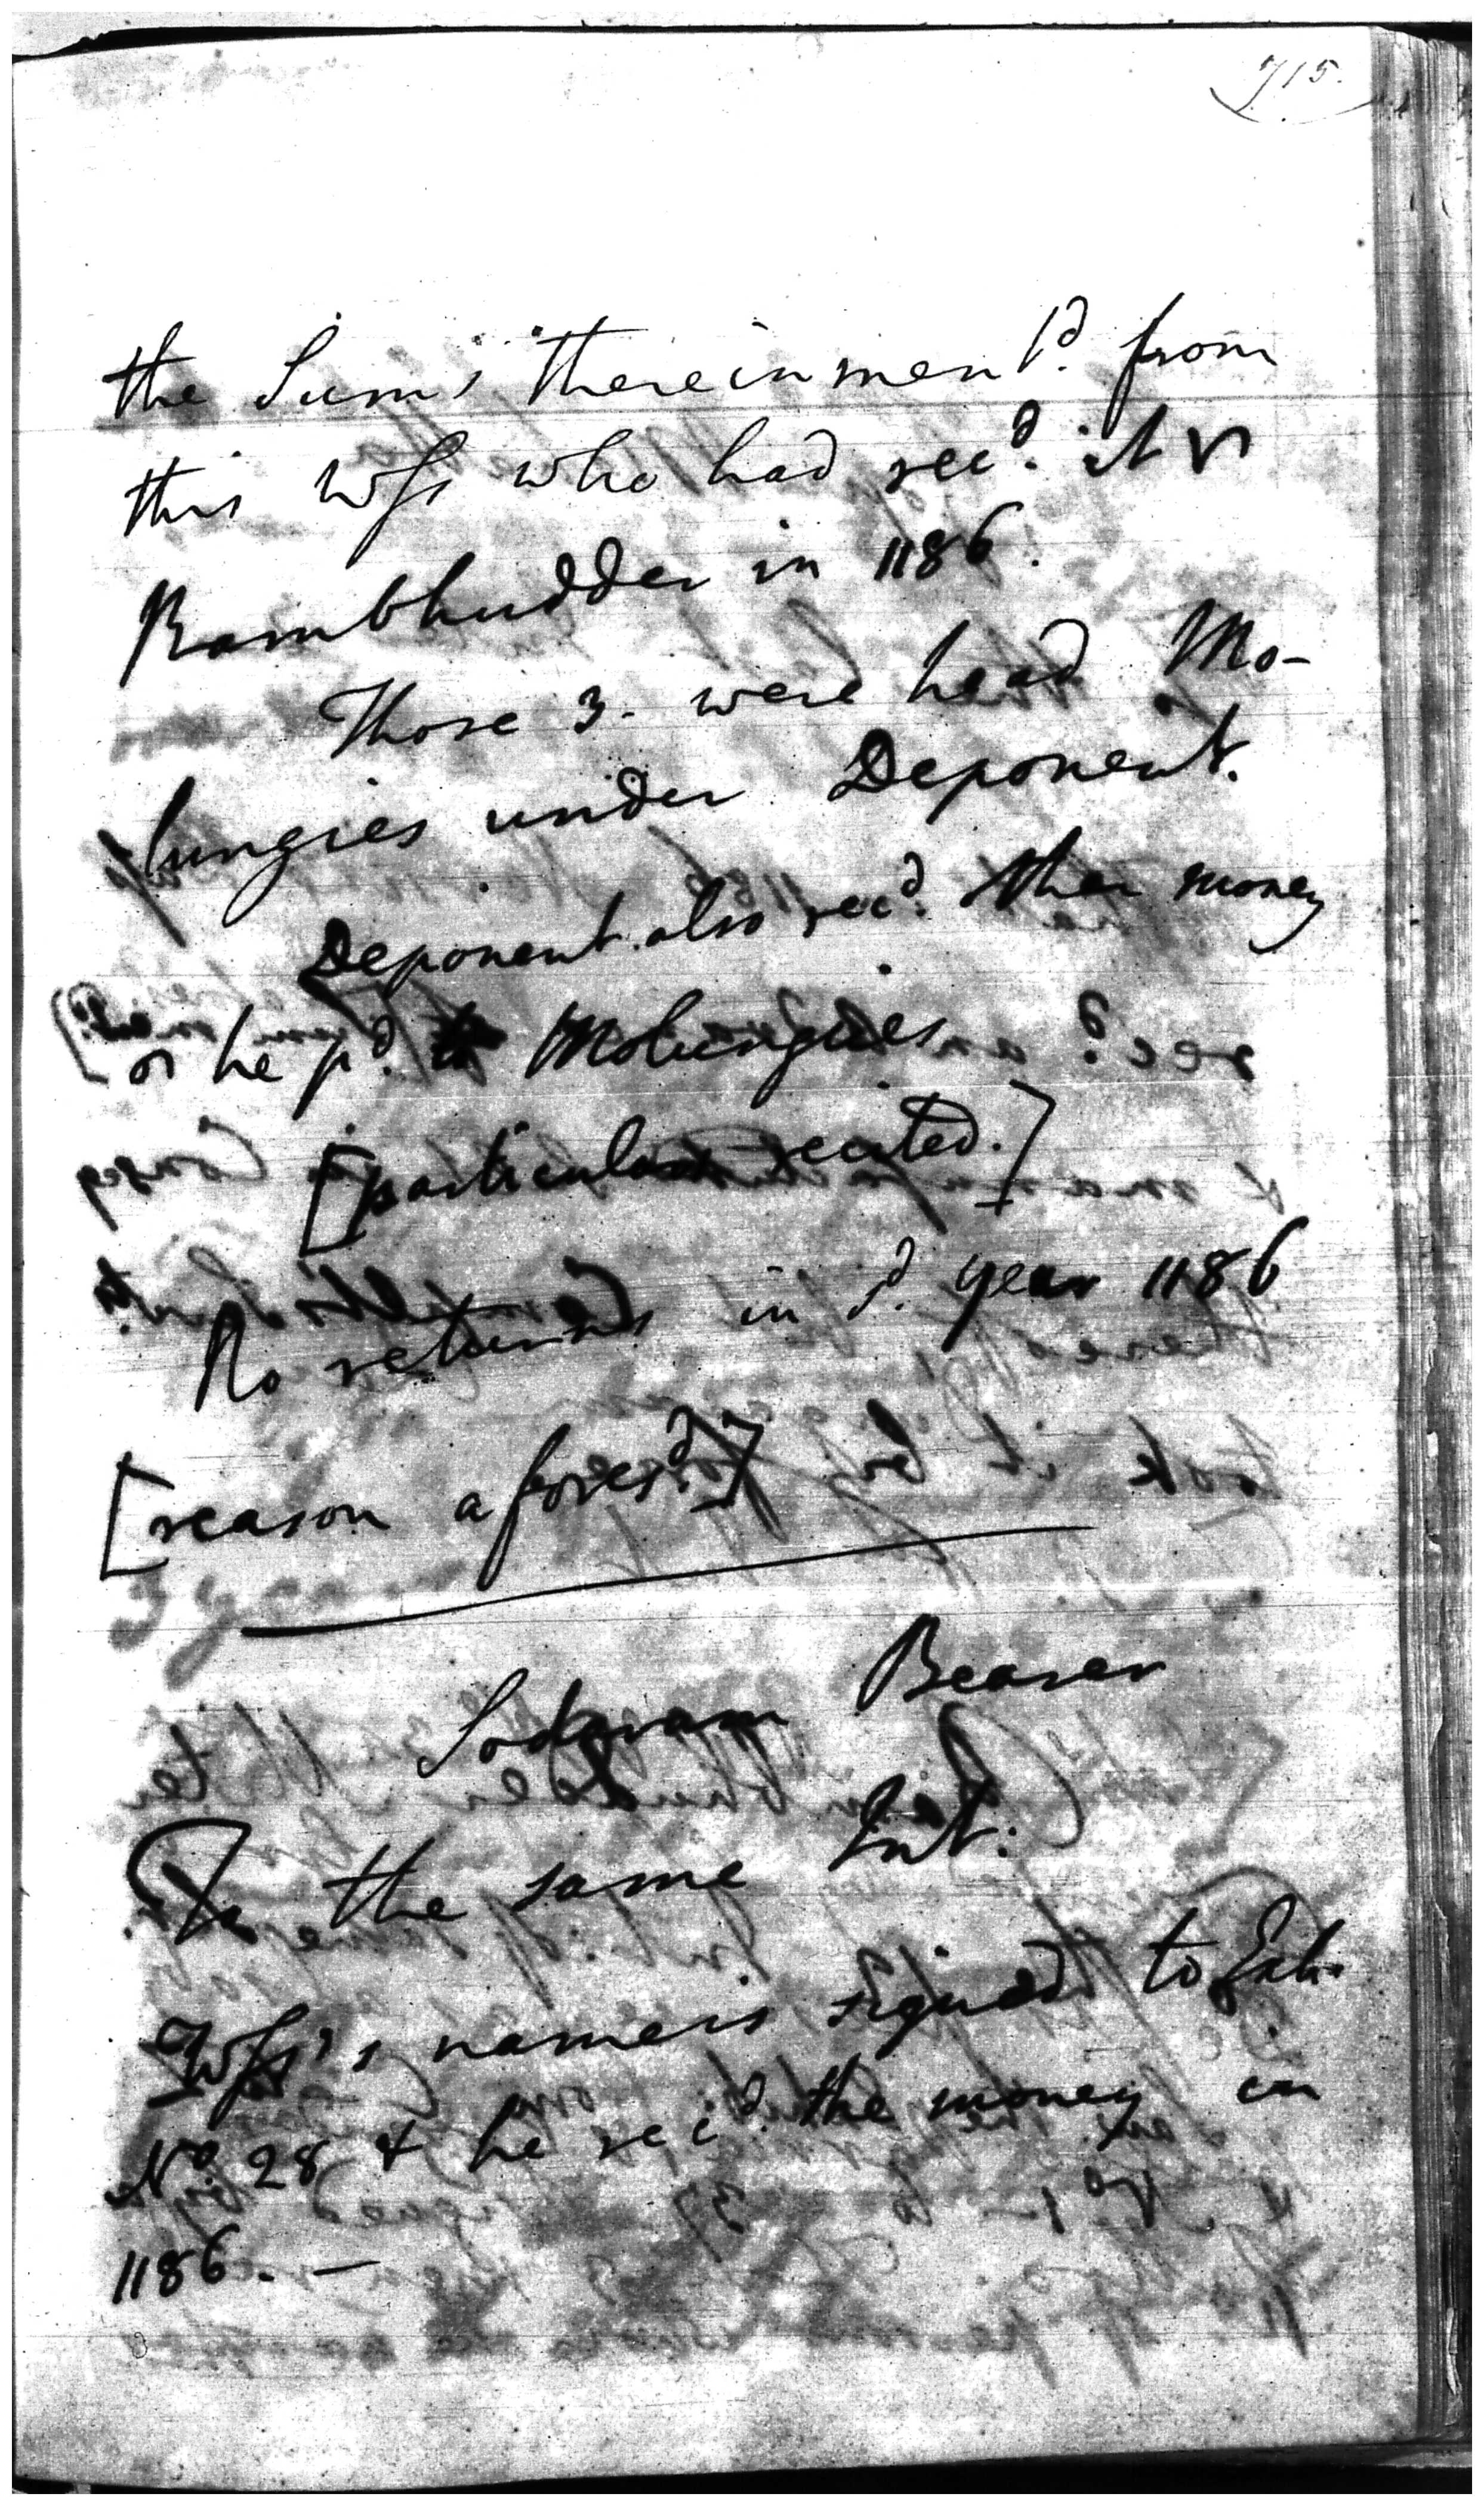 715.
the Sums therein men^td. from
this Wss who had rec^d. it of
Rambhudder in 1186.
Those 3. were head Mo-
lungies under Deponent.
Deponent also rec^d. other money
of he p^d. Molungies
[particulars recited.]
No returns in s^d. year 1186
[reason afores^d.]
Sodaram Bearer
To the same Int:
Wss's name is signed to Exh.
N^o. 28 & he rec^d. the money in
1186. —